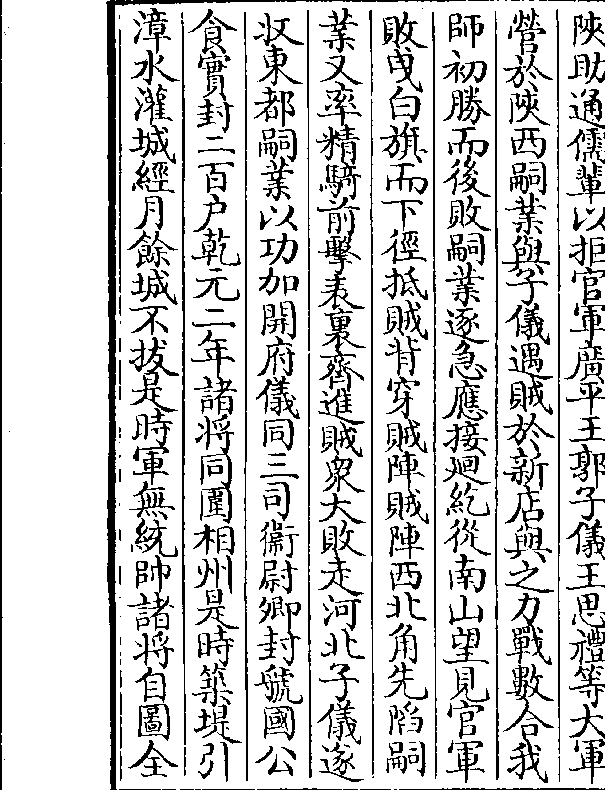 陜助通儒輩以拒官軍廣平王郭子儀王思禮等大軍
營於陜西嗣業與子儀遇賊於新店與之力戰數合我
師初勝而後敗嗣業逐急應接廻紇從南山望見官軍
敗曳白旗而下徑抵賊背穿賊陣賊陣西北角先䧟嗣
業又率精騎前擊表裏齊進賊衆大敗走河北子儀遂
収東都嗣業以功加開府儀同三司衛尉卿封虢國公
食實封二百户乾元二年諸将同圍相州是時築堤引
漳水灌城經月餘城不拔是時軍無統帥諸将自圖全